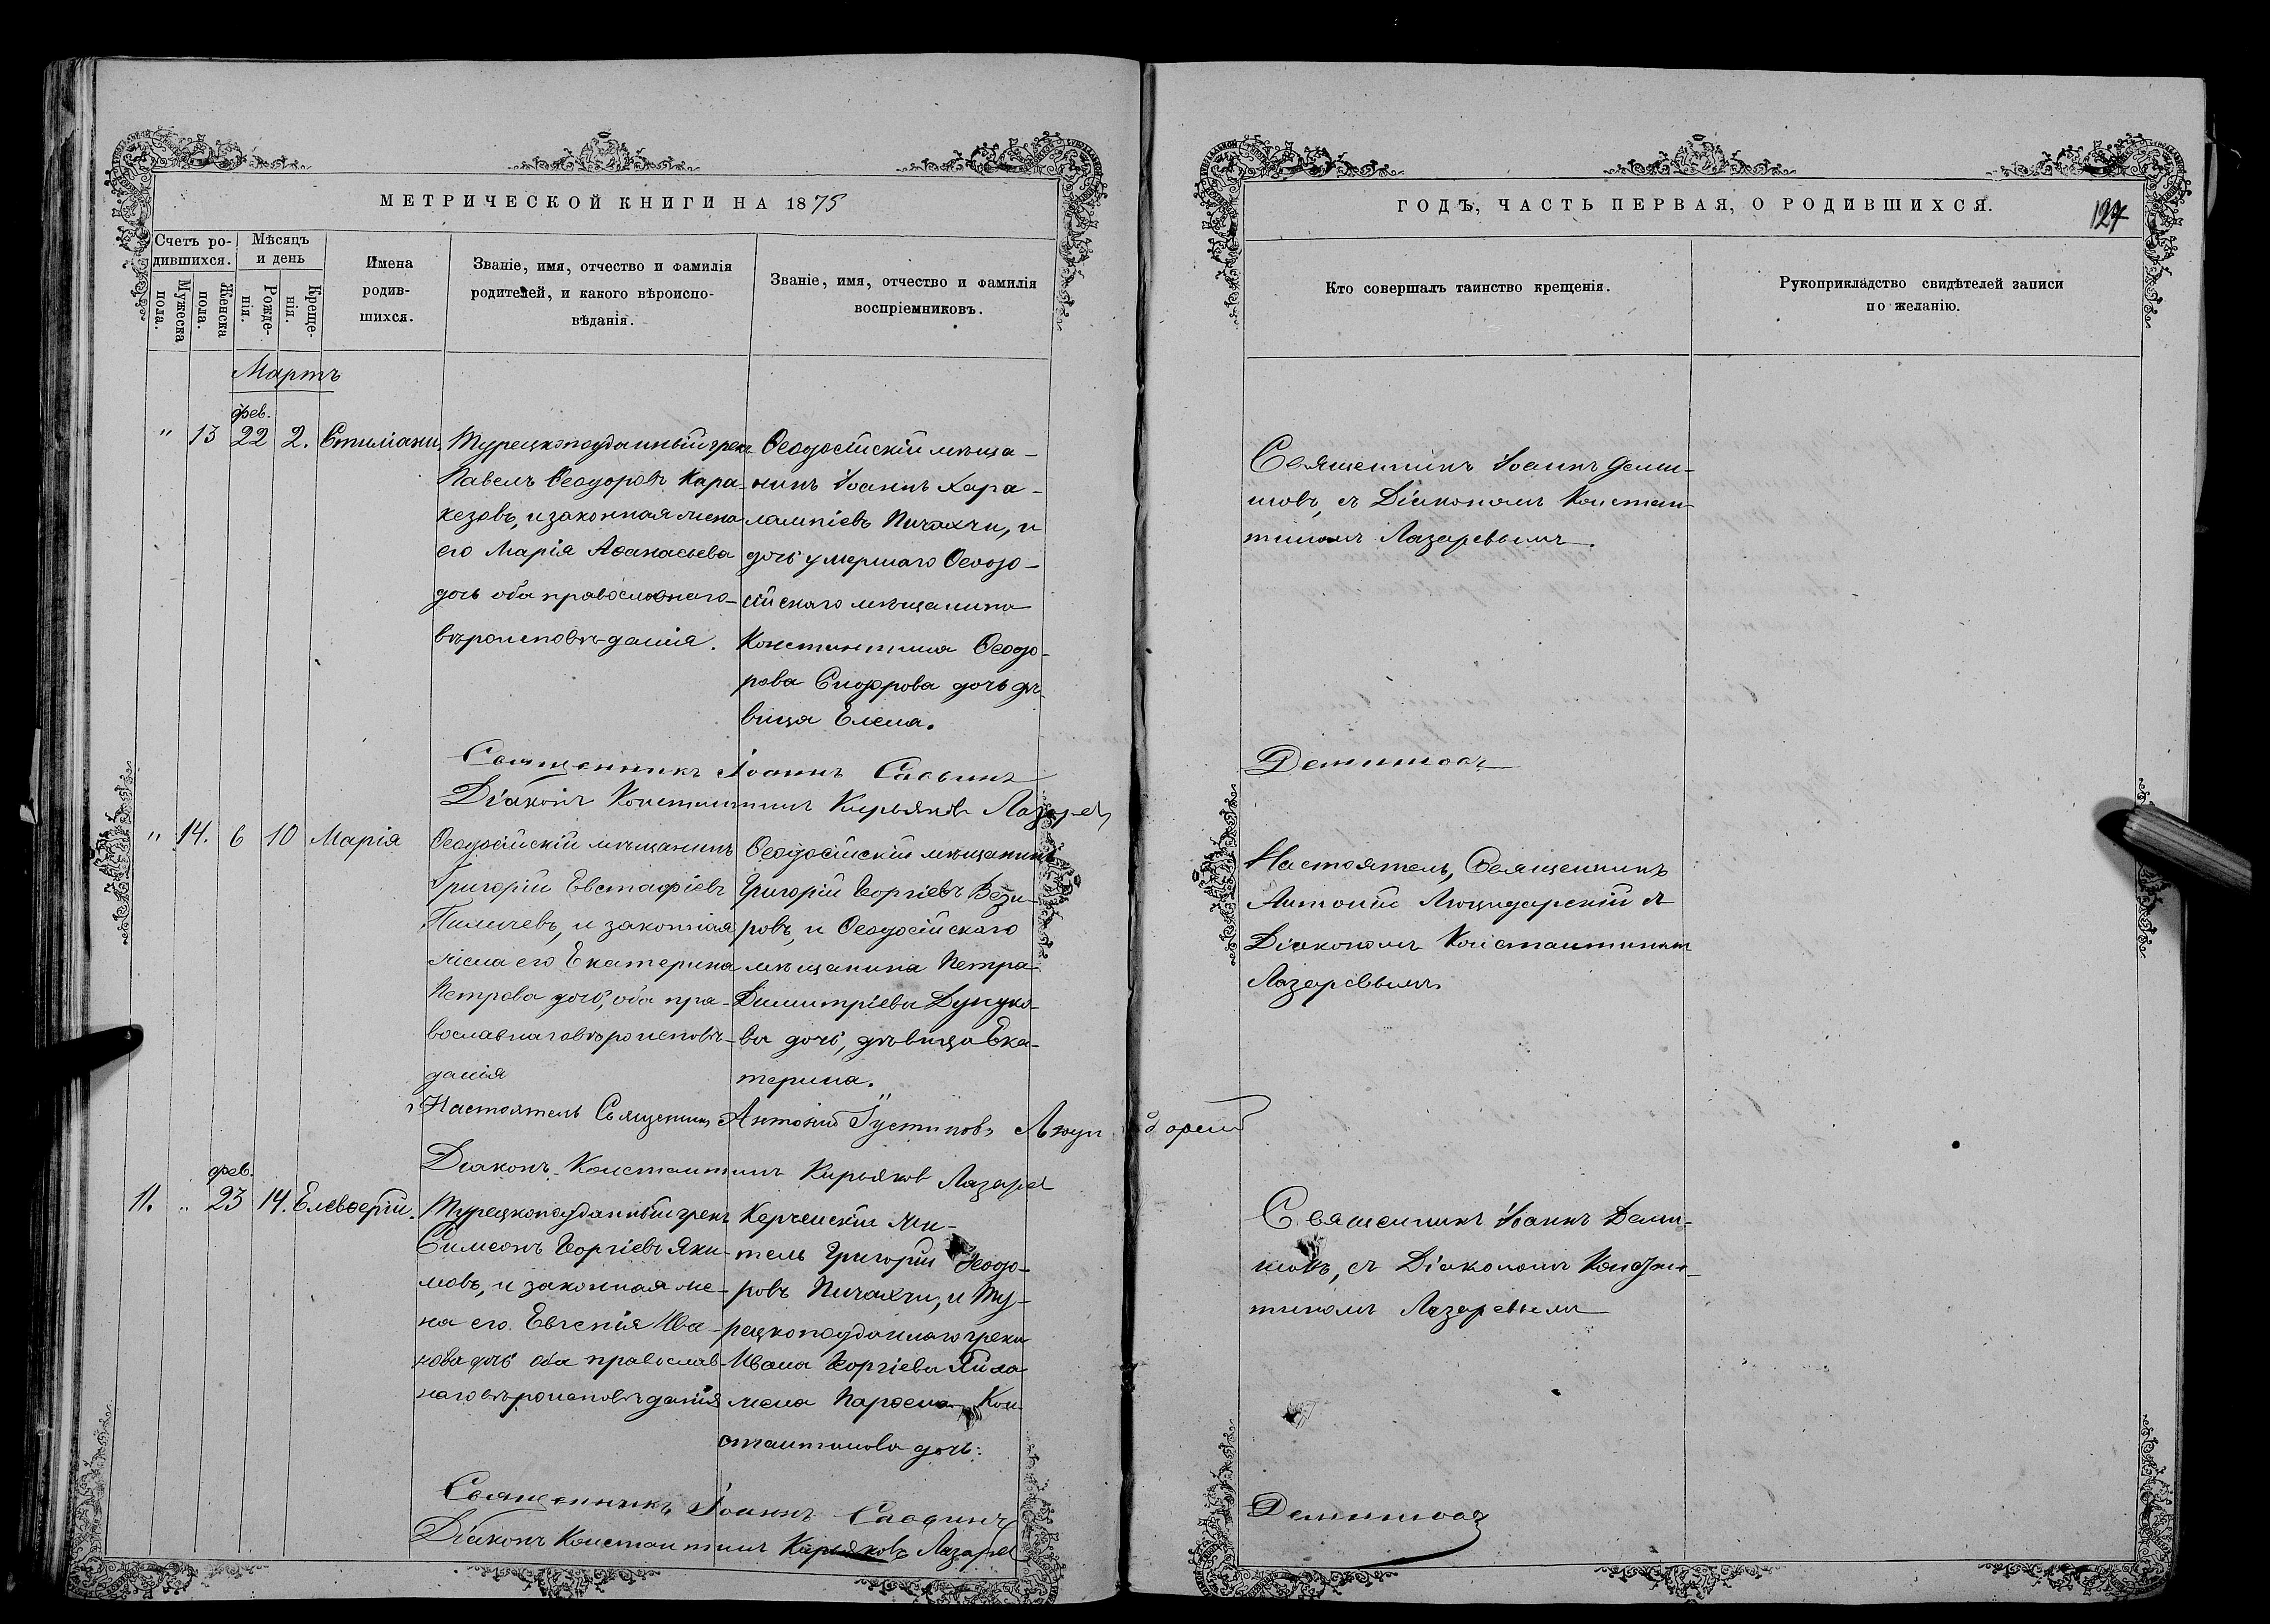 МЕТРИЧЕСКОЙ КНИГИ НА 1875
Счетъ ро-
дившихся.
Мѣсяцъ
и день
Мужеска
пола.
Женска
пола.
Рожде-
нія.
Креще-
нія.
Имена
родив-
шихся.
Званіе, имя, отчество и фамилія
родителей, и какого вѣроиспо-
вѣданія.
Званіе, имя, отчество и фамилія
воспріемниковъ.
Мартъ
" 13 фев. 22 2. Стиліани.
Турецкоподданный грекъ
Павелъ Ѳеодоровъ Кара-
кезовъ, и законная жена
его Марія Аѳанасьева
дочь оба православнаго
вѣроисповѣданія.
Ѳеодосійскій мѣща-
нинъ Іоаннъ Хара-
лампіевъ Пичахчи, и
дочь умершаго Ѳеодо-
сійскаго мѣщанина
Константина Ѳеодо-
рова дочь дѣ-
вица Елена.
Священникъ Іоаннъ Саввинъ
Діаконъ Константинъ Кирьяковъ Лазарев
" 14. 6 10 Марія
Ѳеодосійскій мѣщанинъ
Григорій Евстафіевъ
и законная
жена его Екатерина
Петрова дочь, оба пра-
вославнаго вѣроисповѣ-
данія
Ѳеодосійскій мѣщанинъ
Григорій Георгіевъ Вези-
ровъ, и Ѳеодосійскаго
мѣщанина Петра
Димитріева Дунуко-
ва дочь, дѣвица Ека-
терина.
Настоятель Священникъ Антоній Іустиновъ Люцидарскій
Діаконъ Константинъ Кирьяков Лазарев
11. " фев. 23 14. Елевѳерій.
Турецкоподданный грекъ
Симеонъ Георгіевъ Яки-
мовъ, и законная же-
на его Евгенія Ива-
нова дочь оба православ-
наго вѣроисповѣданія
Керченскій жи-
тель Григорій Ѳеодо-
ровъ Пичахчи, и Ту-
рецкоподданнаго грека
Ивана Георгіева
жена Парѳена Кон-
стантинова дочь.
Священникъ Іоаннъ Саввинъ
Діаконъ Константинъ Кирьяковъ Лазарев
ГОДЪ, ЧАСТЬ ПЕРВАЯ, О РОДИВШИХСЯ.
127
Кто совершалъ таинство крещенія.
Рукоприкладство свидѣтелей записи
по желанію.
Священникъ Іоаннъ Деми-
шовъ, съ Діакономъ Констан-
тиномъ Лазаревымъ.
Демишовъ
Настоятель, Священникъ
Антоній Люцидарскій съ
Діакономъ Константиномъ
Лазаревымъ
Священникъ Іоаннъ Деми-
шовъ, съ Діакономъ Констан-
тиномъ Лазаревымъ
Демишовъ